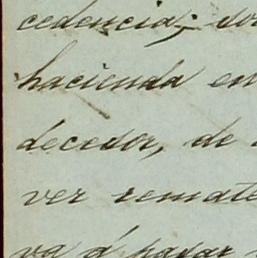 cedencia; do
hacienda en
decesor, de
ver remate
va á pagar